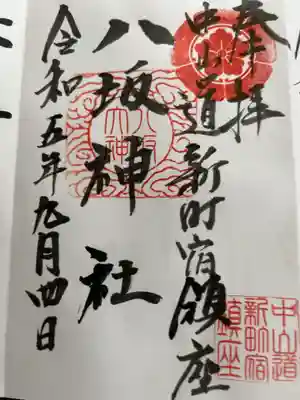 奉拝
中山道新町宿鎮座
八坂神社
令和五年九月四日
中山道
新町宿
鎮座